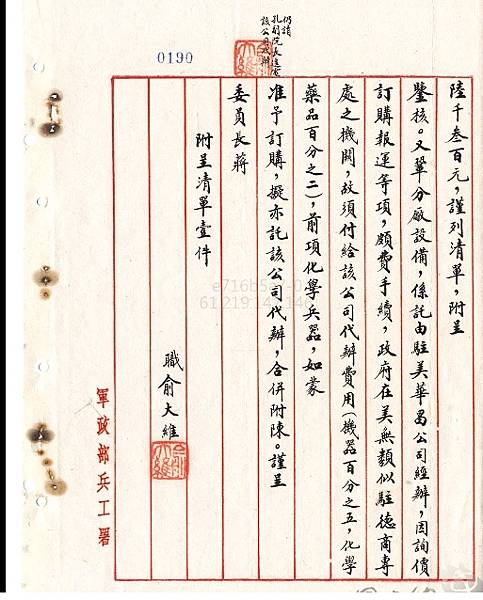 陸千叁百元，謹列清單，附呈
鑒核。又鞏分廠設備，係託由駐美華昌公司經辦，因詢價
訂購報運等項，頗費手續，政府在美無類似駐德商專
處之機關，故須付給該公司代辦費用（機器百分之五，化學
藥品百分之二），前項化學兵器，如蒙
准予訂購，擬亦託該公司代辦，合併附陳。謹呈
委員長蔣
附呈清單壹件
職俞大維
軍政部兵工署
0190
仍請
孔副院長逕電
該公司代辦